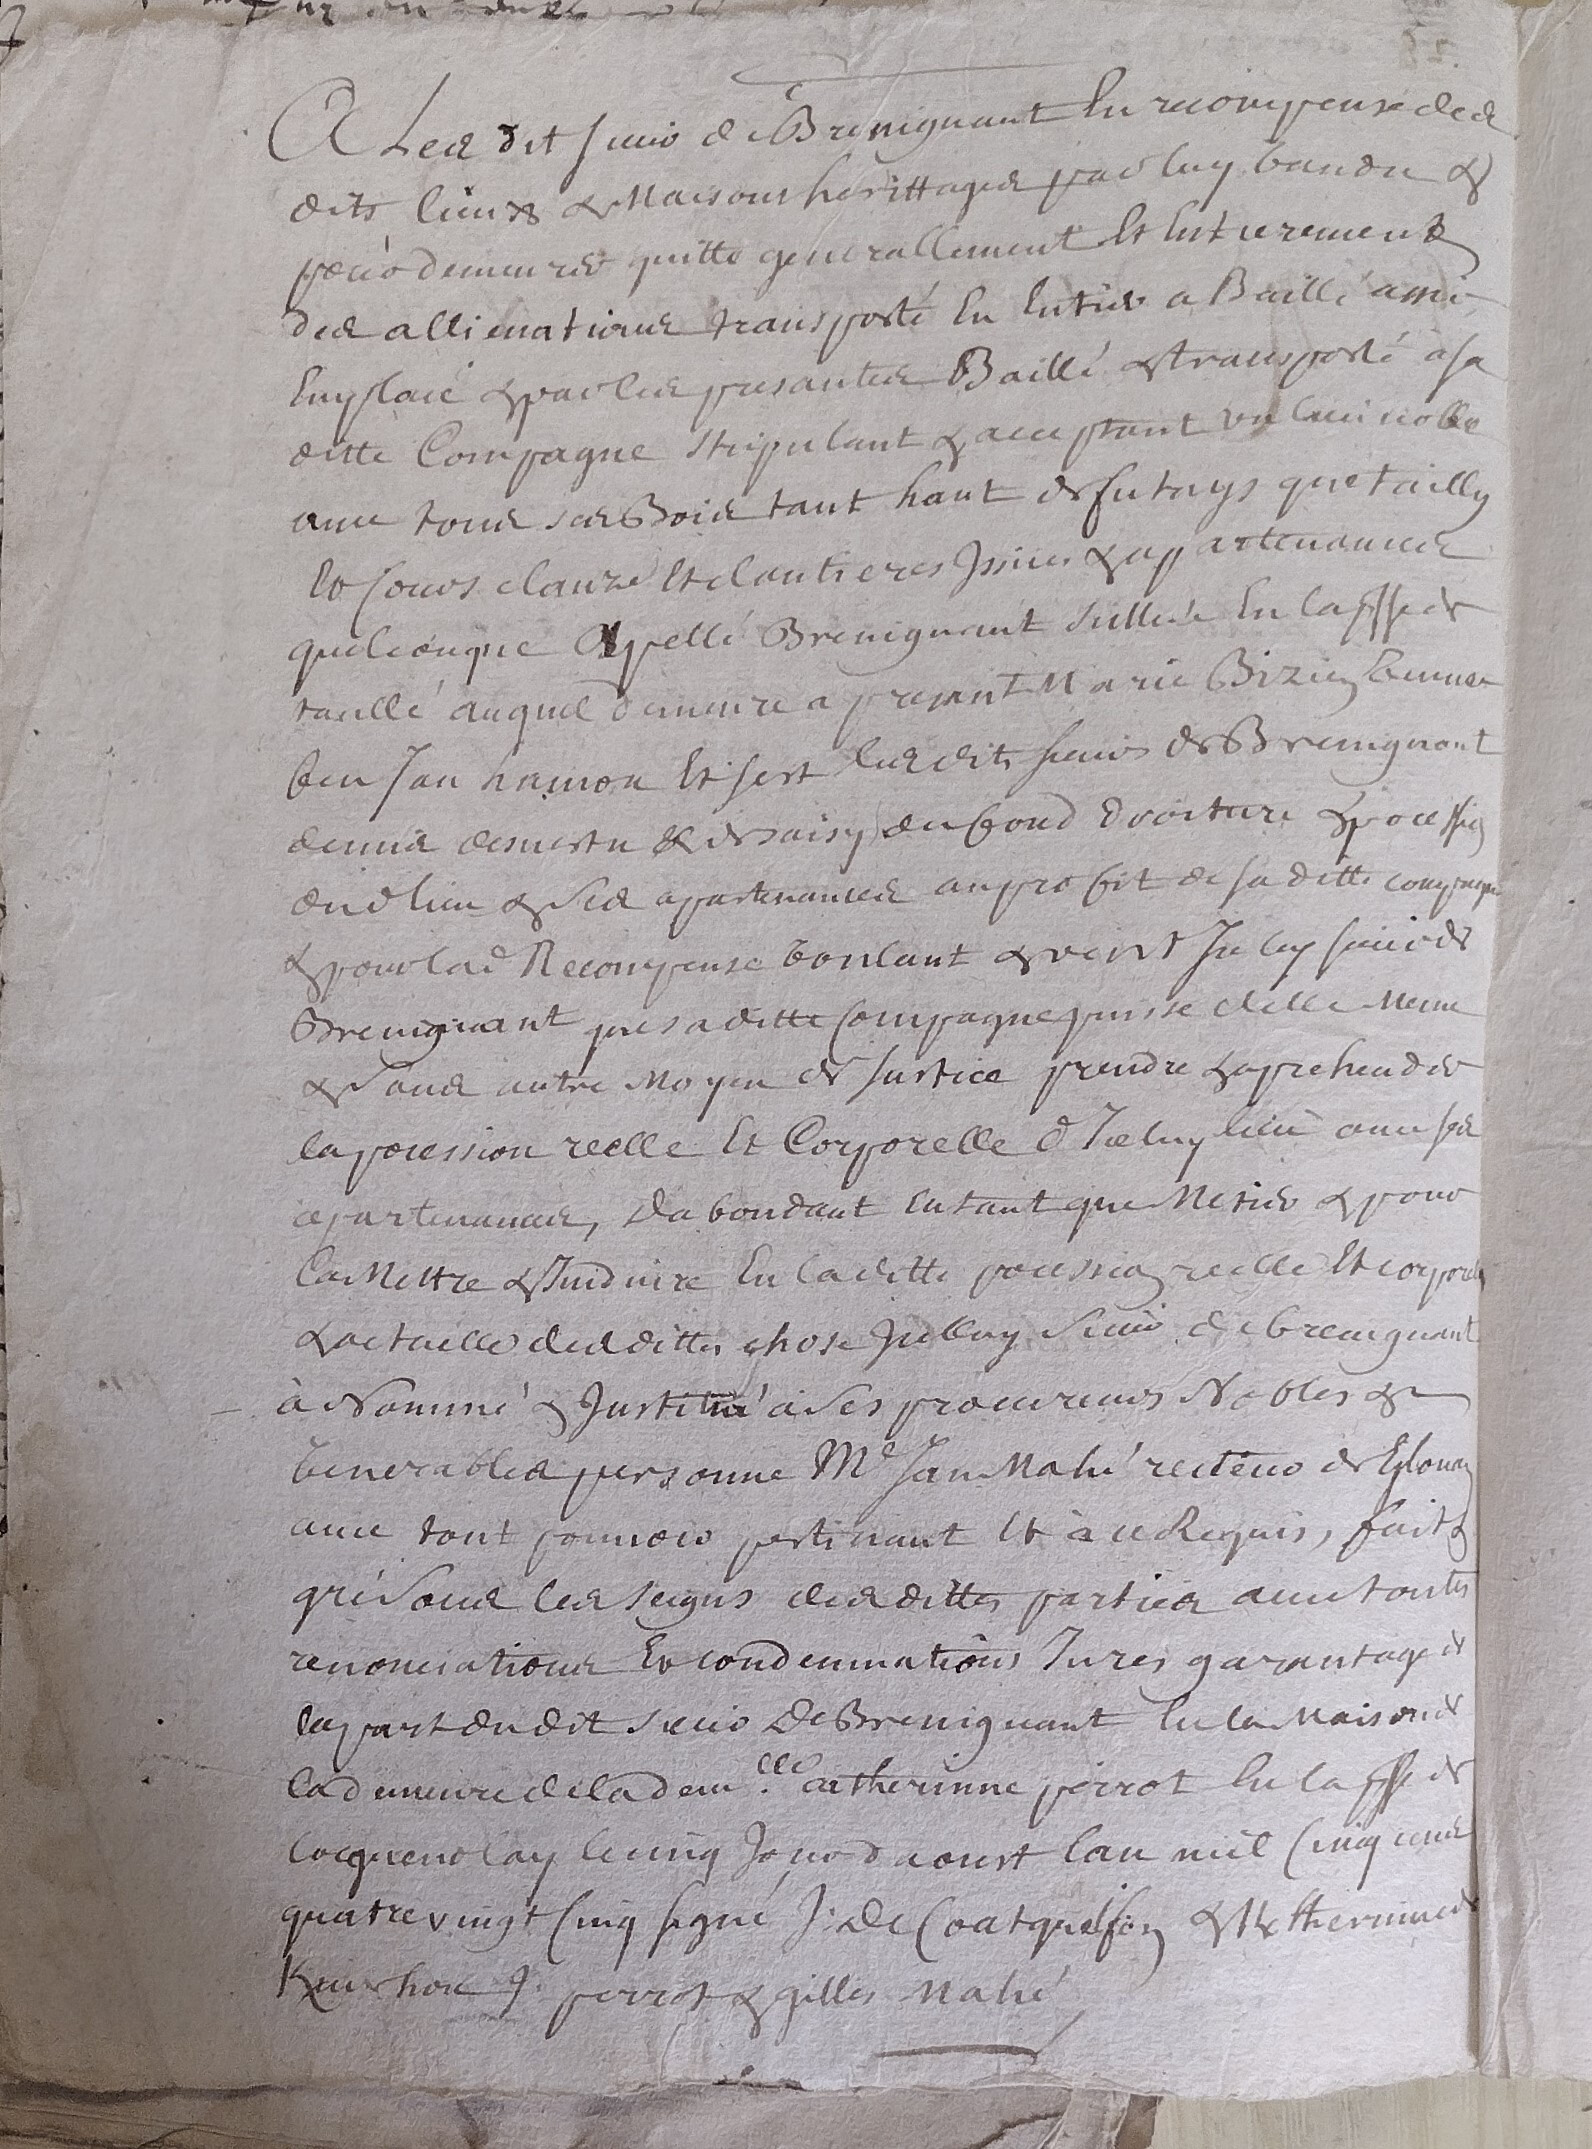 A Led dit sieur de Brenignant En recompense des
dits lieux & Maisons herittages par luy vandu &
pour demeurer quitte generallement Et Entierement
des allienations transporté En Entier a Baillé assis
Emplacé & par les presantes Baillé & transporté à sa
ditte Compagne stipulant & acceptant un lieu noble
avec tous ses Bois tant haut de futays que tailly
Et cours clauze Et clautieres Issues & appartenances
quelconque Apellé Brenignant sittué En la psse de
taullé auquel demeure a presant Marie Bizien veuve
feu Jan hamon Et sest ledit sieur de Brenignant
demis desvestu & desaisy du fond droiture & possession
dud lieu & ses apartenances au profit de sa ditte compagne
& pour lad Recompense voulant & veut Iceluy sieur de
Brenignant que sa ditte Compagne puisse delle Meme
& sans autre Moyen de Justice prendre & aprehender
la pocession reelle Et Corporelle d'Iceluy lieu avec ses
apartenances, Dabondant Entant que Metier & pour
la Mettre & Induire En laditte pocession reelle Et corporelle
& actuelle desdittes chose Icelluy sieur de brenignant
à Nommé & Institué à ses procureurs Nobles &
venerables personne Me Jan Mahé recteur de
avec tout pouvoir pertinant Et à ce Requis, fait &
gré sous les seigns desdittes parties avec toutes
renonciations Et condemnations Jures garantage de
la part dudit sieur De Brenignant En la Maison &
la demeure de lad demlle catherinne perrot En la psse de
locquenolay le cinq Jour daoust lan mil Cinq cens
quatre vingt Cinq signé J: De Coatquelfen & Katherinne de
J. perrot & gilles Mahé